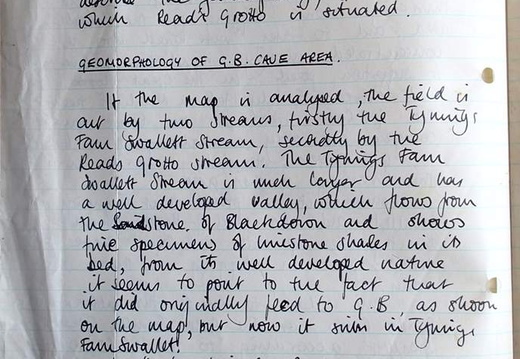 which Reads Grotto is situated.
GEOMORPHOLOGY OF G.B. CAVE AREA.
If the map is analysed, the field is
cut by two streams, firstly the Tynings
Farm Swallett Stream, secondly by the
Reads Grotto stream. The Tynings Farm
Swallett Stream is much larger and has
a well developed valley, which flows from
the Sandstone of Blackdown and shows
fine specimens of limestone shales in its
bed, from its well developed nature
it seems to point to the fact that
it did originally feed to G.B. as shown
on the map, but now it sinks in Tynings
Farm Swallet.